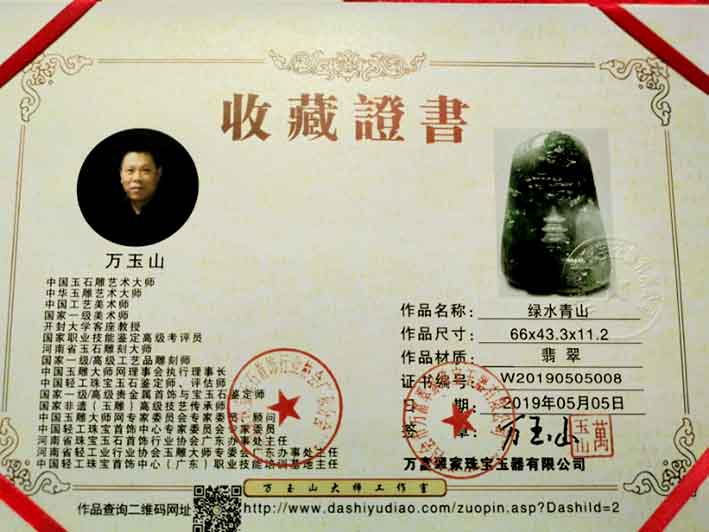 收藏證書
万玉山
中国玉石雕艺术大师
中华玉雕艺术大师
中国工艺美术师
国家一级美术师
开封大学客座教授
国家职业技能鉴定高级考评员
河南省玉石雕刻大师
国家一级/高级工艺品雕刻师
中国玉雕大师网理事会执行理事长
中国轻工珠宝玉石鉴定师、评估师
国家一级/高级贵金属首饰与宝玉石鉴定师
国家非遗（玉雕）高级技艺传承师
中国玉雕大师网专家委员会专家委员、顾问
中国轻工珠宝首饰中心专家委员会专家委员
河南省珠宝玉石首饰行业协会广东办事处主任
河南省轻工业行业协会玉雕大师专委会广东办事处主任
中国轻工珠宝首饰中心（广东）职业技能培训基地主任
作品名称：绿水青山
作品尺寸：66x43.3x11.2
作品材质：翡翠
证书编号：W20190505008
日期：2019年05月05日
签章：万玉山
萬玉山
万富翠家珠宝玉器有限公司
万玉山大师工作室
作品查询二维码网址
http://www.dashiyudiao.com/zuopin.asp?DashiId=2